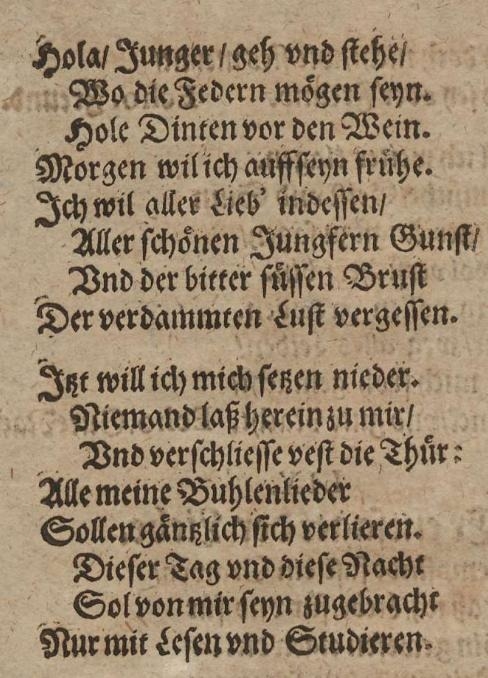 Hola/ Junger/ geh vnd stehe/
Wo die Federn mögen seyn.
Hole Dinten vor den Wein.
Morgen wil ich auffseyn frühe.
Ich wil aller Lieb' indessen/
Aller schönen Jungfern Gunst/
Vnd der bitter süssen Brust
Der verdammten Lust vergessen.
Itzt will ich mich setzen nieder.
Niemand laß herein zu mir/
Vnd verschliesse vest die Thür:
Alle meine Buhlenlieder
Sollen gäntzlich sich verlieren.
Dieser Tag vnd diese Nacht
Sol von mir seyn zugebracht
Nur mit Lesen vnd Studieren.